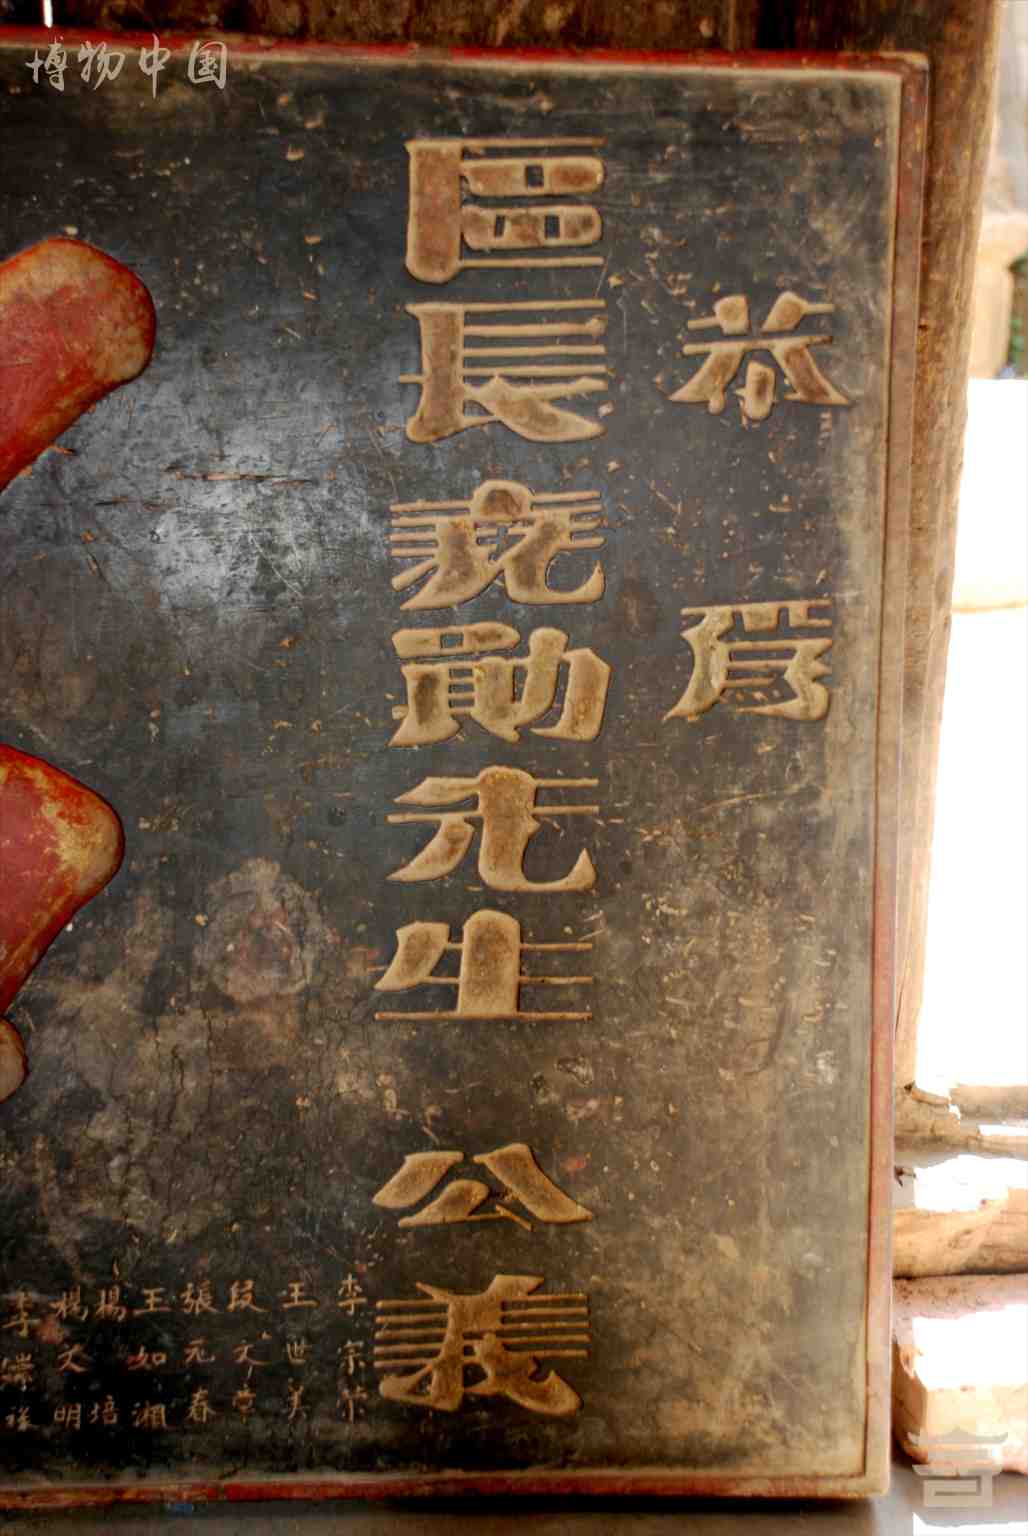 博物中国
恭為
區長堯勛先生公義
李宗榮
王世美
段文章
張元春
王如湘
楊培
楊文明
李